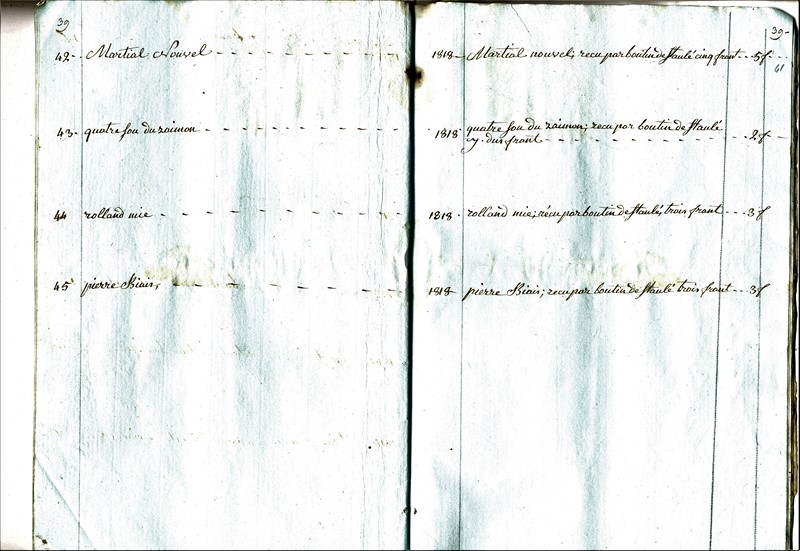 39
42 - Martial Nouvel
43 - quatre sou du raimon
44 rolland mie
45 pierre Biais,
39 -
1818 - Martial nouvel, recu par boutin de staulé cinq frant - - 5f
41
1818 quatre sou du raimon; recu par boutin de staulé
dus frant - 2f
1818 - rolland mie; récu par boutin de staulé, trois frant - - - 3f
1818 pierre Biais; recu par boutin de staulé trois frant - - 3f